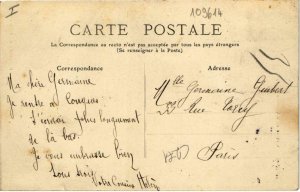 I
109614
CARTE POSTALE
La Correspondance au recto n'est pas acceptée par tous les pays étrangers
(Se renseigner à la Poste)
Correspondance
Adresse
Ma chère Germaine
Je rentre à
t'écrirai plus longuement
de là bas.
Je vous embrasse bien
Votre Cousine
Mlle Germaine Guibert
Rue
Paris